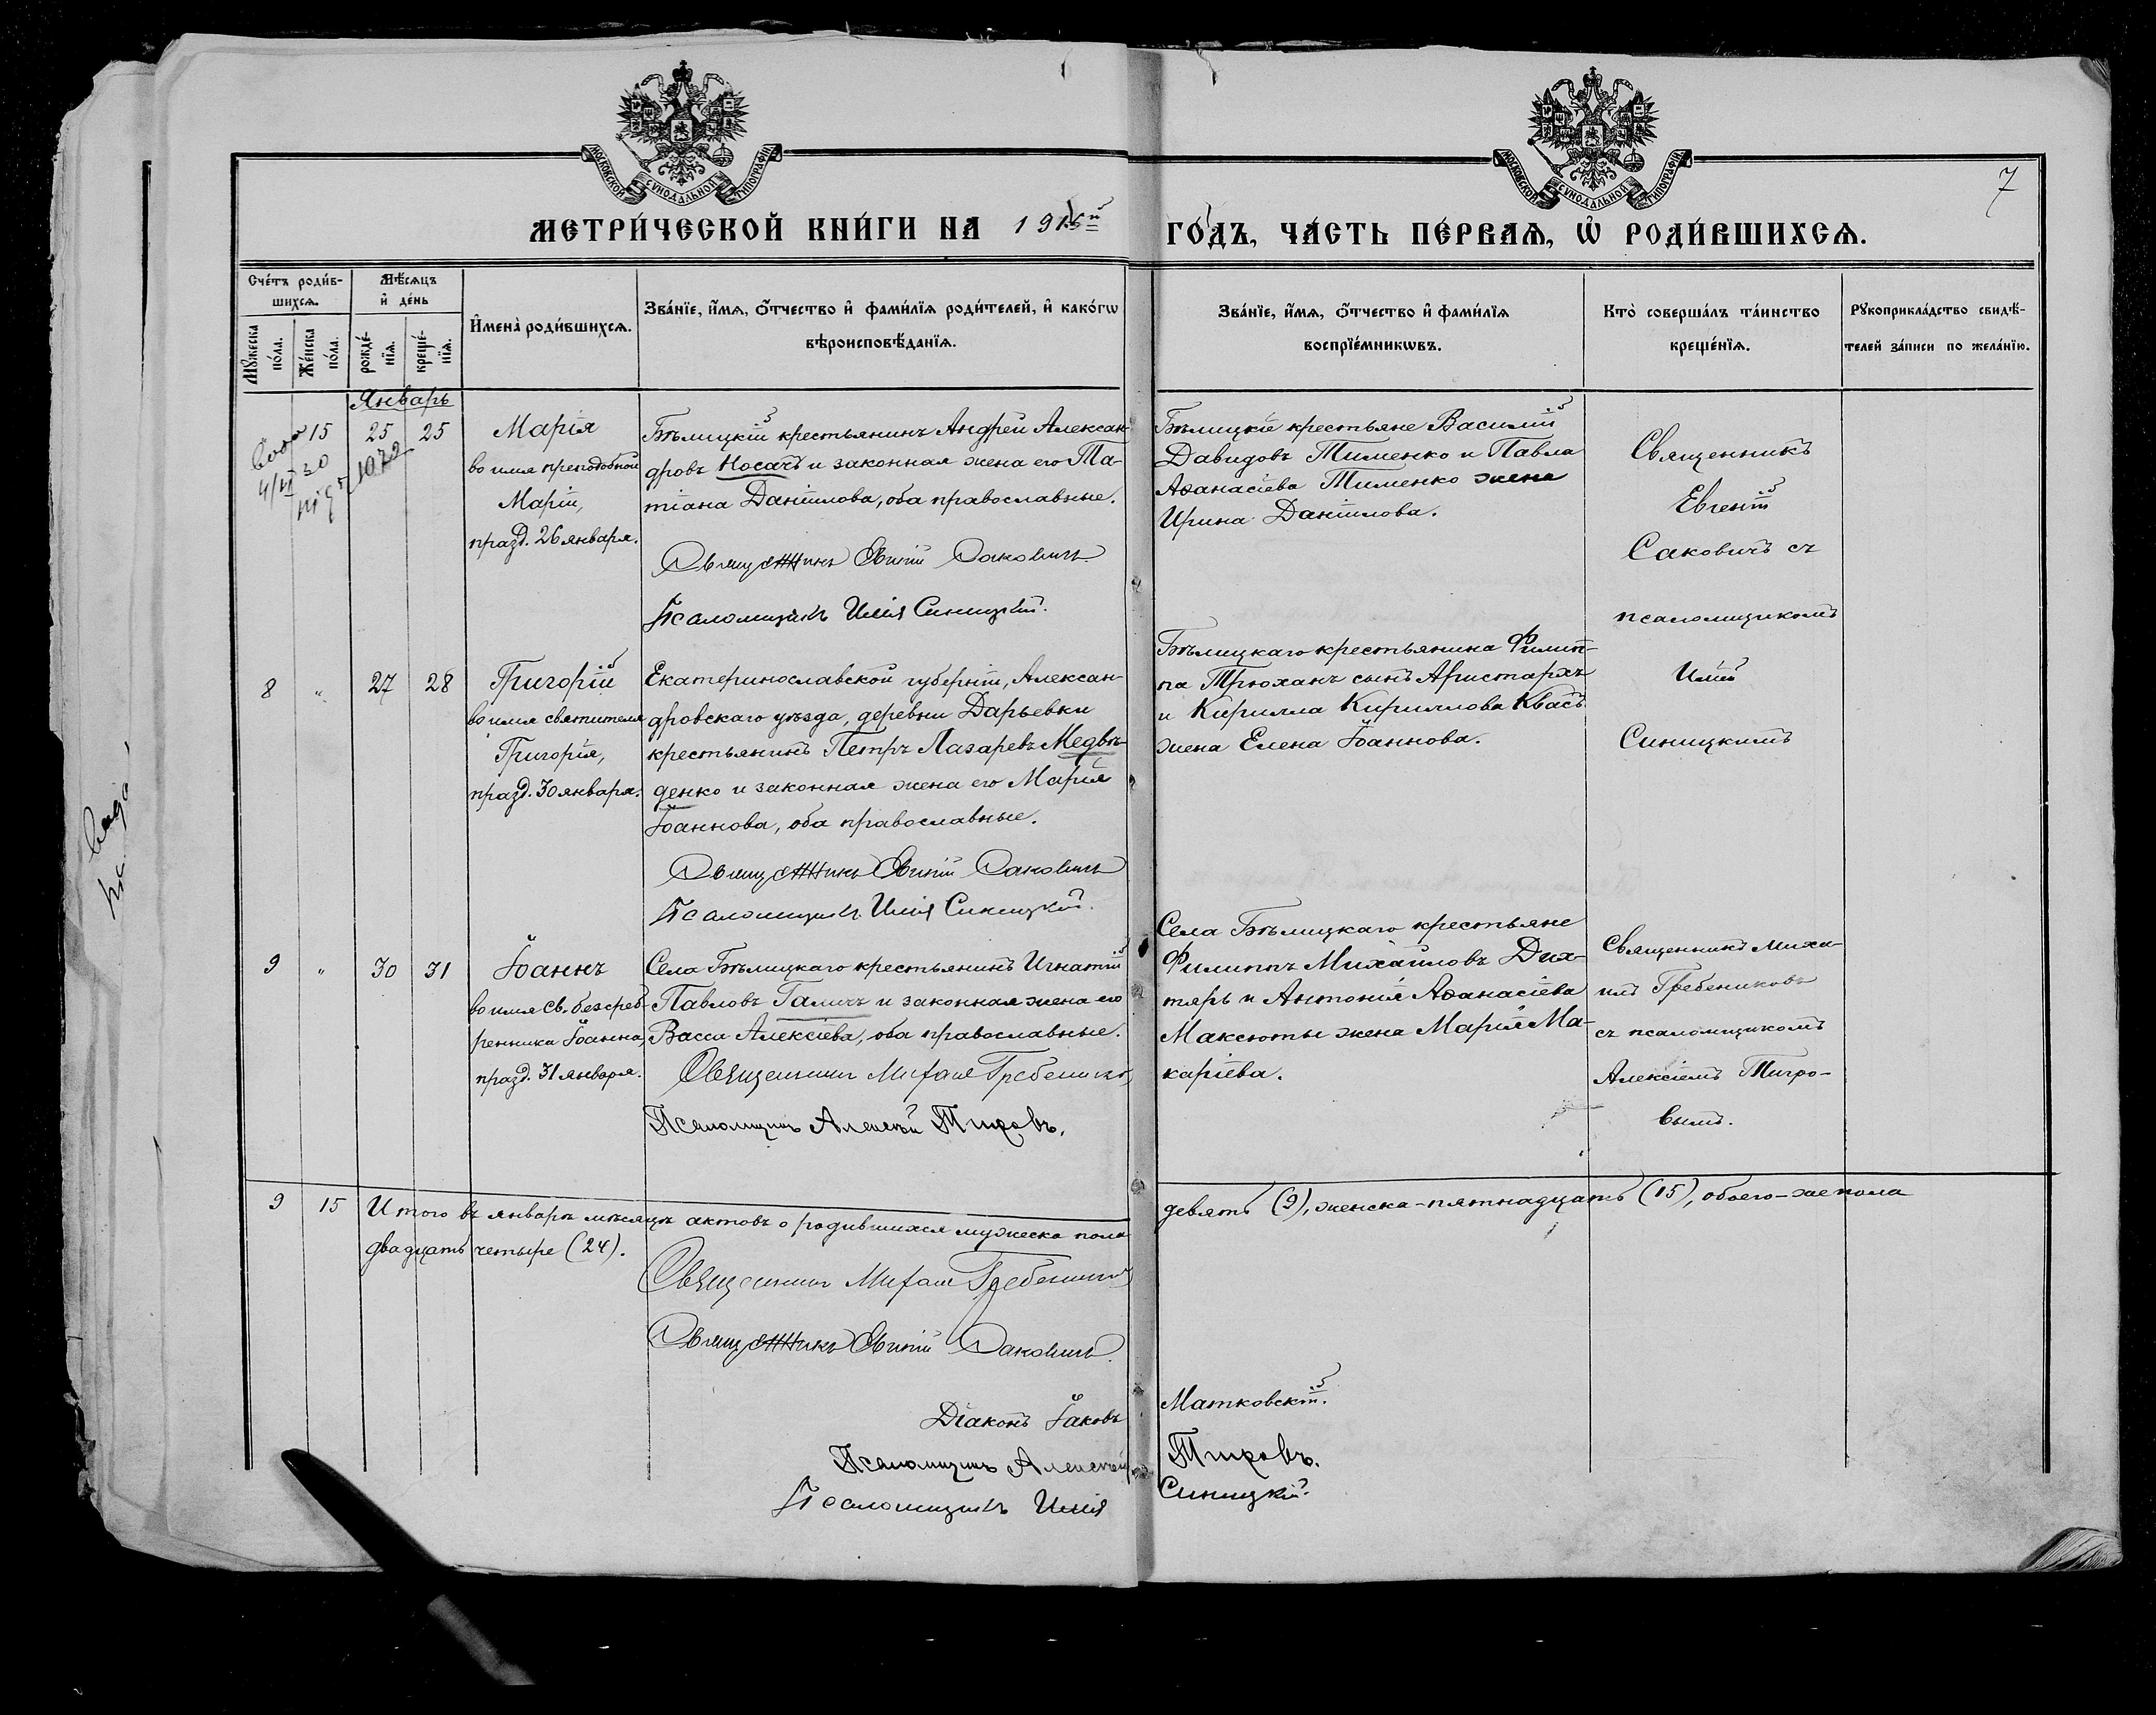 МОСКОВСКОЙ СУНОДАЛЬНОЙ ТИПОГРАФІИ
МОСКОВСКОЙ СУНОДАЛЬНОЙ ТИПОГРАФІИ
7
МЕТРИ́ЧЕСКОЙ КНИ́ГИ НА 1915й ГО́ДЪ, ЧА́СТЬ ПЕ́РВАѦ, Ѡ҆ РОДИ́ВШИХСѦ.
Сче́тъ роди́в-
шихсѧ.
Мѣ́сѧцъ
и҆ де́нь
Мꙋ́жеска
по́ла.
Же́нска
по́ла.
рожде́-
нїѧ.
креще́-
нїѧ.
И҆мена̀ роди́вшихсѧ.
Зва́нїе, и҆́мѧ, ѻ҆́тчество и҆ фами́лїѧ роди́телей, и҆ како́гѡ
вѣроисповѣ́данїѧ.
Зва́нїе, и҆́мѧ, ѻ҆́тчество и҆ фами́лїѧ
воспрїе́мникѡвъ.
Кто̀ соверша́лъ та́инство
креще́нїѧ.
Рꙋкоприкла́дство свидѣ́-
телей за́писи по жела́нїю.
Январь
15 25 25
Марія
во имя преподобной
Маріи,
празд. 26 января.
Бѣлицкій крестьянинъ Андрей Алексан-
дровъ Носачъ и законная жена его Та-
тіана Даніилова, оба православные.
Священникъ Евгеній Саковичъ.
Псаломщикъ Илія Синицкій.
Бѣлицкіе крестьяне Василій
Давидовъ Тименко и Павла
Аѳанасіева Тименко жена
Ирина Даніилова.
Священникъ
Евгеній
Саковичъ съ
псаломщикомъ
Иліей
Синицкимъ
8 " 27 28
Григорій
во имя святителя
Григорія,
празд. 30 января.
Екатеринославской губерніи, Алексан-
дровскаго уѣзда, деревни Дарьевки
крестьянинъ Петръ Лазаревъ Медвѣ-
денко и законная жена его Марія
Іоаннова, оба православные.
Священникъ Евгеній Саковичъ
Псаломщикъ Илія Синицкій.
Бѣлицкаго крестьянина Филип-
па Трюханъ сынъ Аристархъ
и Кирилла Кириллова Квасъ
жена Елена Іоаннова.
9 " 30 31
Іоаннъ
во имя св. безсреб-
ренника Іоанна,
празд. 31 января.
Села Бѣлицкаго крестьянинъ Игнатій
Павловъ Галичъ и законная жена его
Васса Алексіева, оба православные.
Священникъ Михаилъ Гребениковъ
Псаломщикъ Алексѣй Тигровъ.
Села Бѣлицкаго крестьяне
Филиппъ Михаиловъ Дих-
тярь и Антонія Аѳанасіева
Максюты жена Марія Ма-
каріева.
Священникъ Миха-
илъ Гребениковъ
съ псаломщикомъ
Алексіемъ Тигро-
вымъ.
9 15 Итого въ январѣ мѣсяцѣ актовъ о родившихся мужеска пола девять (9), женска-пятнадцать (15), обоего-же пола
двадцать четыре (24).
Священникъ Михаилъ Гребениковъ
Священникъ Евгеній Саковичъ.
Діаконъ Іаковъ Матковскій.
Псаломщикъ Алексѣй Тигровъ.
Псаломщикъ Илія Синицкій.